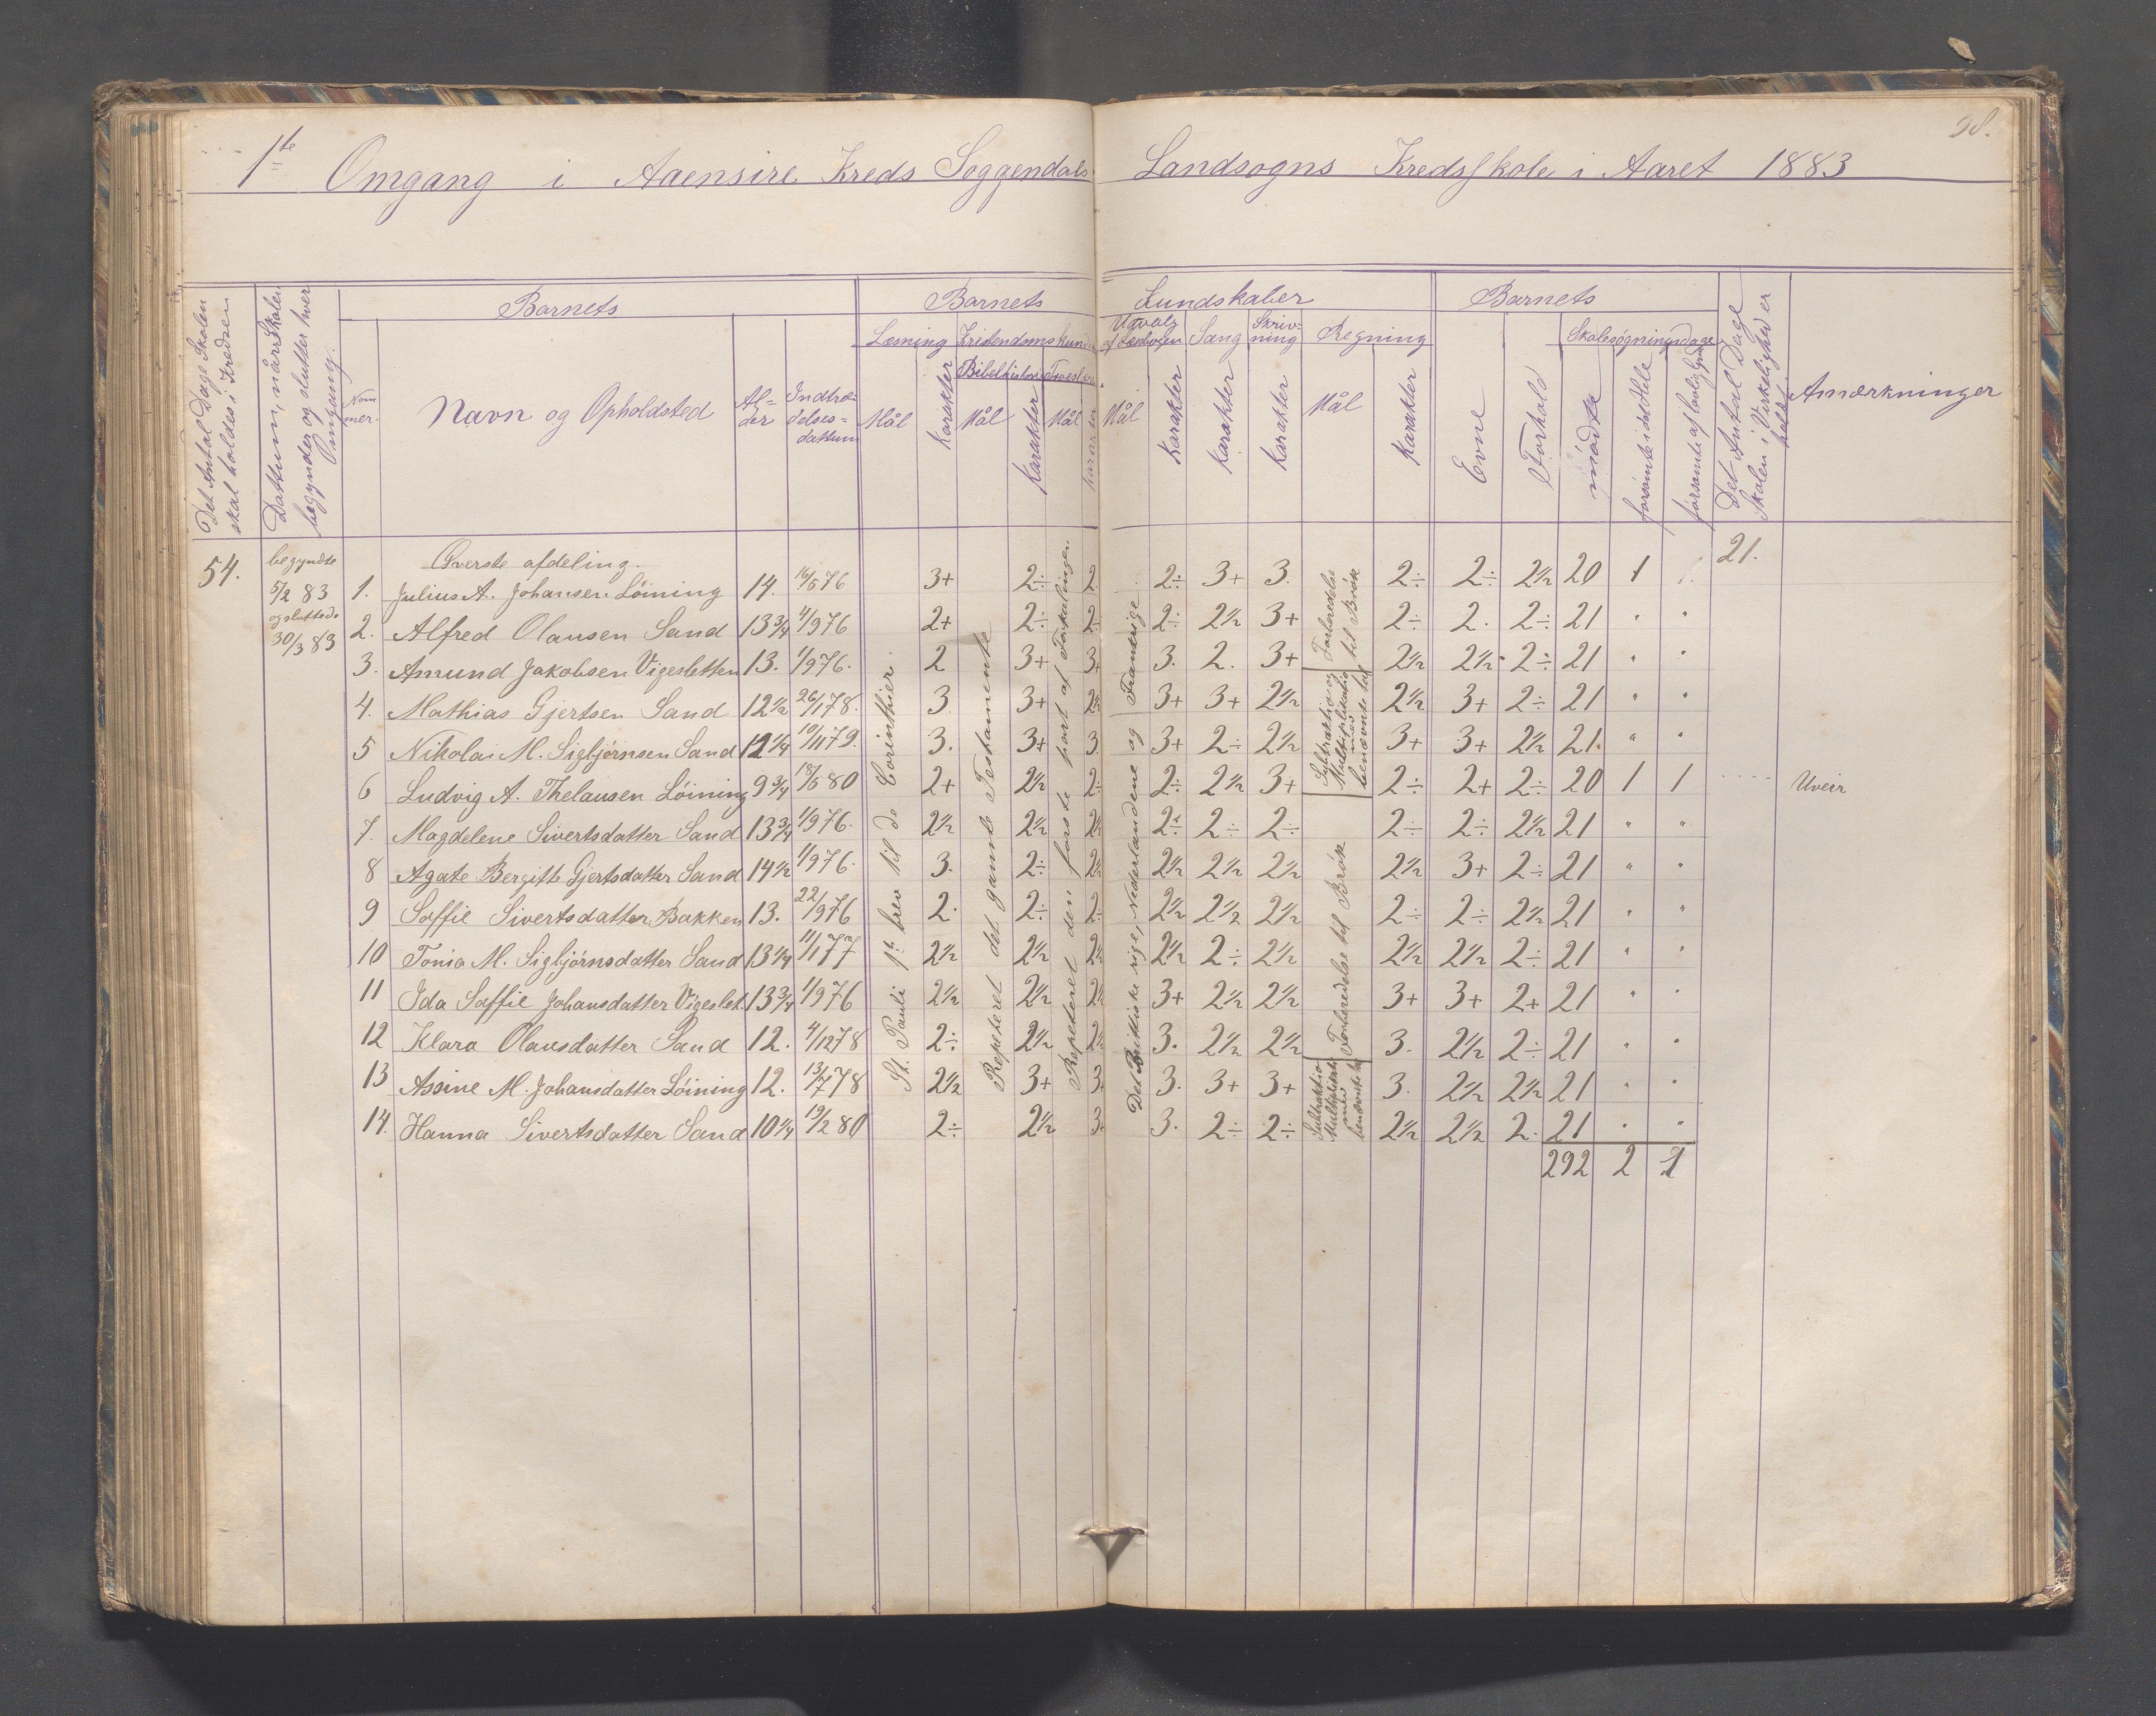 98.
1te Omgang i Aaensire Kreds Soggendals Landsogns Kredsskole i Aaret 1883
Det Antal Dage Skolen skal holdes i Kredsen
Dattum, når Skolen begynder og slutter hver Omgang.
Barnets
Nommer.
Navn og Opholdsted
Alder
Indtrædelsesdattum
Barnets Kundskaber
Læsning
Kristendomskundskab
Bibelhistorie
Mål
Karakter
Mål
Karakter
Mål
Karakter
Udvalg af Læsebogen
Sang
Skrivning
Regning
Mål
Karakter
Karakter
Karakter
Mål
Karakter
Barnets
Evne
Forhold
Skolesøgningsdage
mødte
forsømte i det Hele
forsømte af lovlig Grund
Det Antal Dage Skolen i Virkelighed er holdt
Anmærkninger
54.
begyndte
5/2 83
og sluttede
30/3 83
Øverste afdeling.
21.
1. Julius A. Johansen Löining 14. 16/5 76 3+ 2÷ 2 2÷ 3+ 3. 2÷ 2÷ 2½ 20 1 1.
2. Alfred Olausen Sand 13¾ 1/9 76 2+ 2÷ 2÷ 2÷ 2½ 3+ 2÷ 2. 2÷ 21 " "
3. Amund Jakobsen Vigesletten 13. 1/9 76. 2 3+ 3+ 3. 2. 3+ 2½ 2½ 2÷ 21 " "
4. Mathias Gjertsen Sand 12½ 26/1 78. 3. 3+ 2½ 3+ 3+ 2½ 2½ 3+ 2÷ 21 " "
5 Nikolai M. Sigbjörnsen Sand 12¼ 10/11 79. 3. 3+ 3. 3+ 2÷ 2½ 3+ 3+ 2½ 21. " "
6 Ludvig A. Thelausen Löining 9¾ 18/5 80 2+ 2½ 2÷ 2÷ 2½ 3+ 2÷ 2+ 2÷ 20 1 1 Uveir
7. Magdelene Sivertsdatter Sand 13¾ 1/9 76. 2½ 2½ 2½ 2÷ 2÷ 2÷ 2÷ 2÷ 2½ 21 " "
8 Agate Bergitte Gjertsdatter Sand 14½ 1/9 76. 3. 2÷ 2½ 2½ 2½ 2½ 2½ 3+ 2÷ 21 " "
9 Soffie Sivertsdatter Bakken 13. 22/9 76 2. 2÷ 2÷ 2½ 2½ 2½ 2÷ 2÷ 2½ 21 " "
10 Tonia M. Sigbjörnsdatter Sand 13¼ 11/1 77 2½ 2½ 2½ 2½ 2÷ 2½ 2½ 2½ 2÷ 21 " "
11 Ida Soffie Johansdatter Vigeslet. 13¾ 1/9 76 2½ 2½ 2½ 3+ 2½ 2½ 3+ 3+ 2+ 21 " "
12 Klara Olausdatter Sand 12. 4/12 78 2÷ 2½ 2½ 3. 2½ 2½ 3. 2½ 2÷ 21 " "
13 Assine M. Johansdatter Löining 12. 13/7 78 2½ 3+ 3+ 3. 3+ 3+ 3. 2½ 2½ 21 " "
14. Hanna Sivertsdatter Sand 10¼ 19/2 80 2÷ 2½ 3+ 3. 2÷ 2÷ 2½ 2½ 2. 21 " "
292 2 2
St. Pauli 1te brev til de Corinthier.
Repeteret det gamle Testamente
Repeteret den første part af Forklaringen.
Det Brittiske rige, Nederlandene og Frankrige
Forberedelse til Brök
Subtraktion og Multiplikation med benævnte tal
Forberedelse til Brök
Subtraktion Multiplikation med benævnte tal